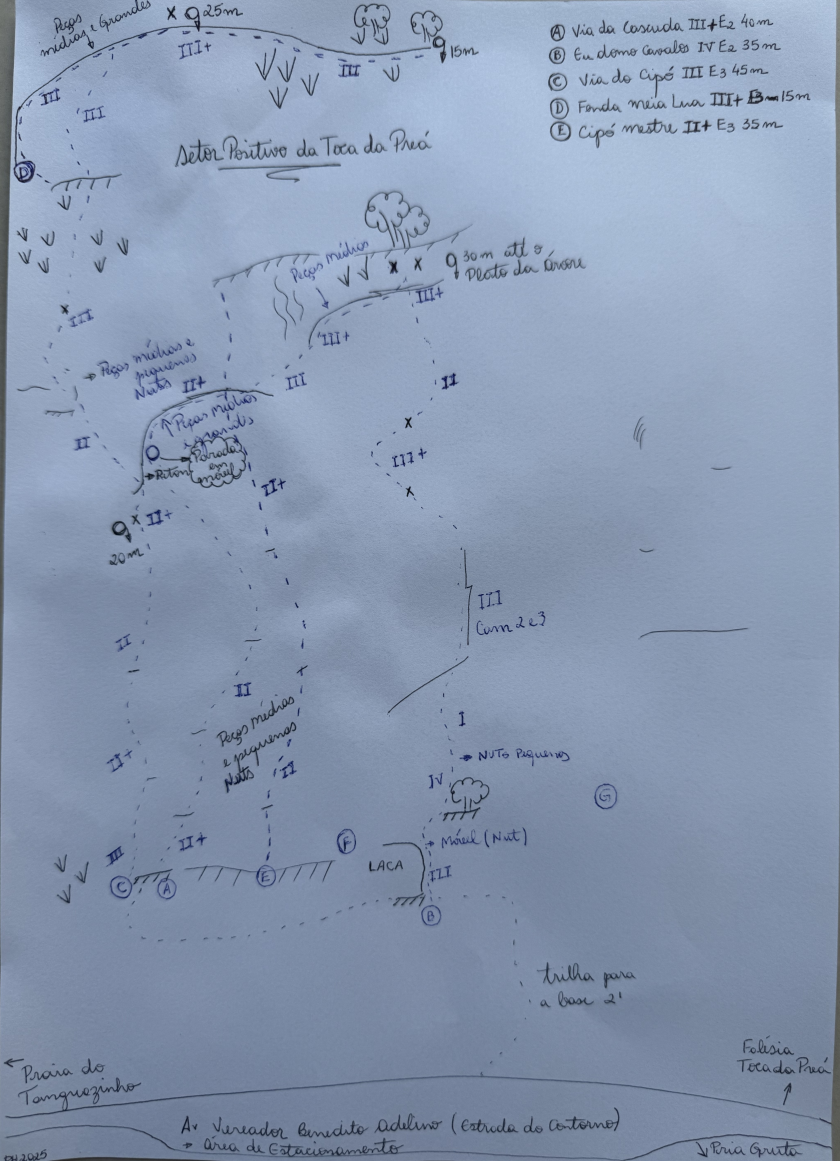 Peças
médias e Grandes
X
25m
III+
15m
III
III
III
D
Ⓐ Via da Cascuda III+E2 40m
Ⓑ Eu domo Cavalos IV E2 35m
Ⓒ Via do Cipó III E3 45m
Ⓓ Fenda meia Lua III+ 15m
Ⓔ Cipó mestre II+ E3 35m
Setor Positivo da Toca da Preá
Peças Médias
X X
30m até o
Platô da Árvore
III+
III+
x
III
→ Peças médias e
pequenas
Nuts
II+
III
II
↑ Peças médias
e grandes
→ Piton
Parada
em
móvel
II
x
III+
x
II+
x II+
20m
III
Cam 2 e 3
II
II
Peças médias
e pequenas
Nuts
II
II+
I
→ Nuts Pequenos
IV
G
→ Móvel (Nut)
III
II+
F
LACA
III
C
A
E
B
trilha para
a base 2'
← Praia do
Tanguazinho
Falésia
Toca da Preá
Av Vereador Benedito Adelino (Estrada do Contorno)
→ Área de Estacionamento